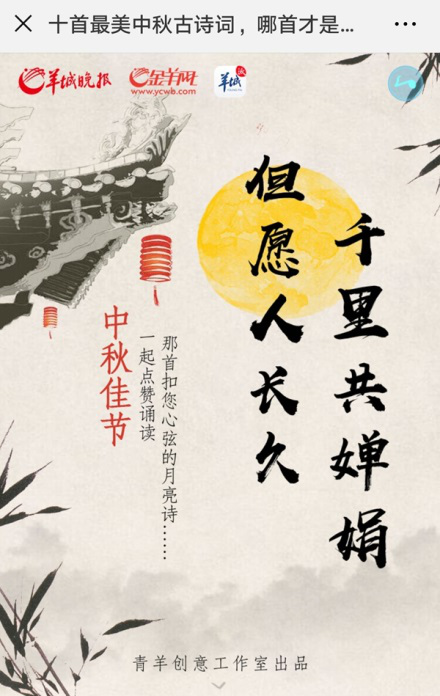 十首最美中秋古诗词，哪首才是...
羊城晚报
金羊网
www.ycwb.com
羊城
但愿人长久
千里共婵娟
中秋佳节
一起点赞诵读
那首扣您心弦的月亮诗……
青羊创意工作室出品